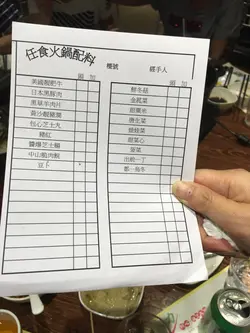 任食火鍋配料
檯號 經手人
頭 加
頭 加
美國靚肥牛
日本黑豚肉
黑草羊肉片
黃沙靚豬膶
包心芝士丸
豬紅
醬爆芝士腸
中山脆肉鯇
豆卜
鮮冬菇
金菇菜
甜粟米
唐生菜
娃娃菜
菠菜
出前一丁
都一烏冬